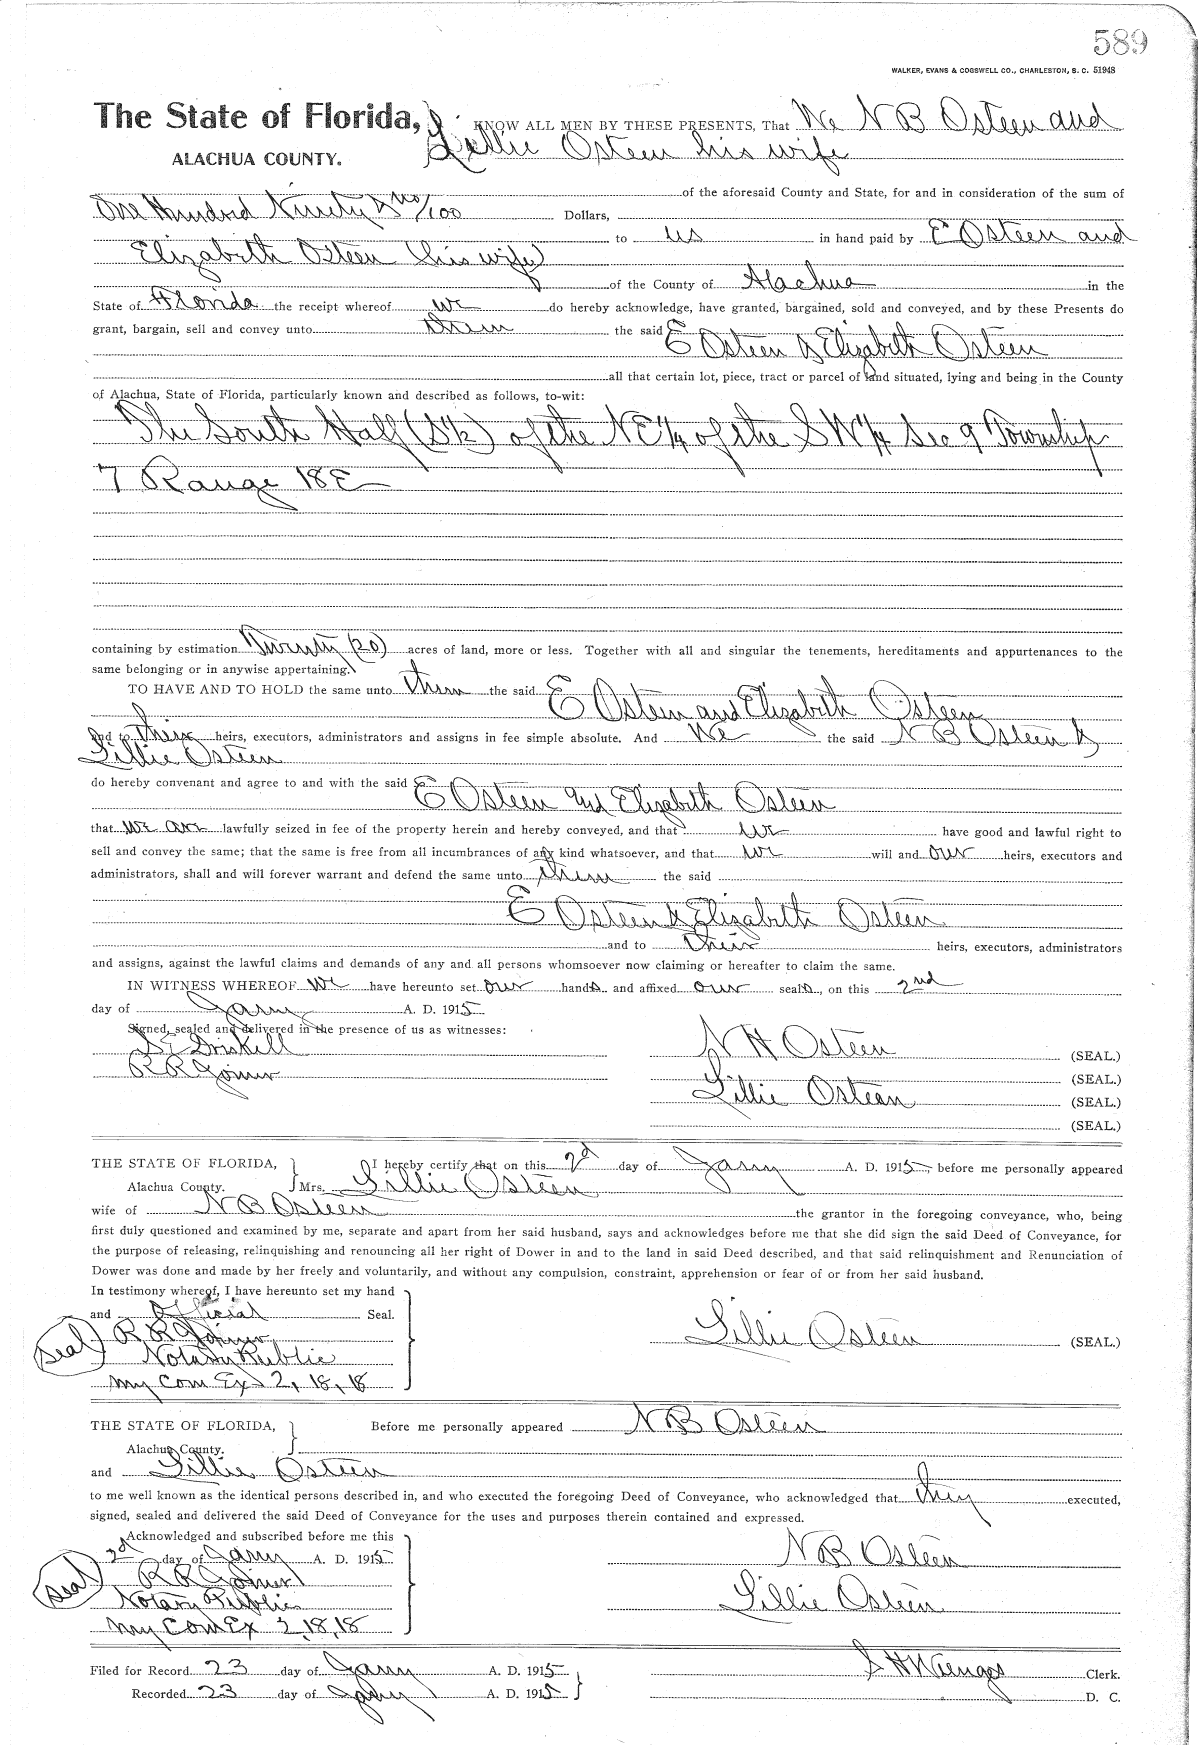 589
WALKER, EVANS & COGSWELL CO., CHARLESTON, S. C. 51948
The State of Florida, KNOW ALL MEN BY THESE PRESENTS, That We N B Osteen and
ALACHUA COUNTY. Lillie Osteen his wife
of the aforesaid County and State, for and in consideration of the sum of
One Hundred Ninety & no/100 Dollars,
to us in hand paid by E Osteen and
Elizabeth Osteen (his wife)
of the County of Alachua in the
State of Florida the receipt whereof we do hereby acknowledge, have granted, bargained, sold and conveyed, and by these Presents do
grant, bargain, sell and convey unto them the said
E Osteen & Elizabeth Osteen
all that certain lot, piece, tract or parcel of land situated, lying and being in the County
of Alachua, State of Florida, particularly known and described as follows, to-wit:
The South Half (S½) of the NE¼ of the SW¼ Sec 9 Township
7 Range 18E
containing by estimation Twenty (20) acres of land, more or less. Together with all and singular the tenements, hereditaments and appurtenances to the
same belonging or in anywise appertaining.
TO HAVE AND TO HOLD the same unto them the said
E Osteen and Elizabeth Osteen
and to their heirs, executors, administrators and assigns in fee simple absolute. And We the said N B Osteen &
Lillie Osteen
do hereby convenant and agree to and with the said E Osteen and Elizabeth Osteen
that we are lawfully seized in fee of the property herein and hereby conveyed, and that we have good and lawful right to
sell and convey the same; that the same is free from all incumbrances of any kind whatsoever, and that we will and our heirs, executors and
administrators, shall and will forever warrant and defend the same unto them the said
E Osteen & Elizabeth Osteen
and to their heirs, executors, administrators
and assigns, against the lawful claims and demands of any and all persons whomsoever now claiming or hereafter to claim the same.
IN WITNESS WHEREOF we have hereunto set our hands and affixed our seals, on this 2nd
day of Jany A. D. 1915
Signed, sealed and delivered in the presence of us as witnesses:
S E Driskell
N H Osteen (SEAL.)
R R Joiner
(SEAL.)
Lillie Osteen (SEAL.)
(SEAL.)
THE STATE OF FLORIDA, I hereby certify that on this 2d day of Jany A. D. 1915, before me personally appeared
Alachua County. Mrs. Lillie Osteen
wife of N B Osteen the grantor in the foregoing conveyance, who, being
first duly questioned and examined by me, separate and apart from her said husband, says and acknowledges before me that she did sign the said Deed of Conveyance, for
the purpose of releasing, relinquishing and renouncing all her right of Dower in and to the land in said Deed described, and that said relinquishment and Renunciation of
Dower was done and made by her freely and voluntarily, and without any compulsion, constraint, apprehension or fear of or from her said husband.
In testimony whereof, I have hereunto set my hand
and Official Seal.
Seal R R Joiner
Lillie Osteen (SEAL.)
Notary Public
My Com Ex 2, 18, 18
THE STATE OF FLORIDA, Before me personally appeared N B Osteen
Alachua County.
and Lillie Osteen
to me well known as the identical persons described in, and who executed the foregoing Deed of Conveyance, who acknowledged that they executed,
signed, sealed and delivered the said Deed of Conveyance for the uses and purposes therein contained and expressed.
Acknowledged and subscribed before me this
2d day of Jany A. D. 1915
N B Osteen
Seal R R Joiner
Notary Public
Lillie Osteen
My Com Ex 2, 18, 18
Filed for Record 23 day of Jany A. D. 1915 S H Wienges Clerk.
Recorded 23 day of Jany A. D. 1915 D. C.